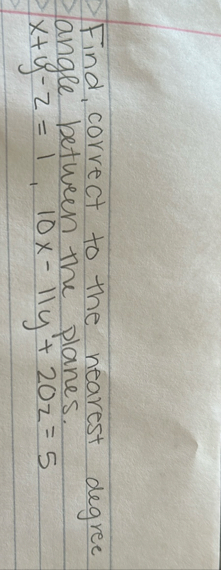 Find, correct to the nearest degree
angle between the planes.
x+y-z = 1, 10x - 11y + 20z = 5